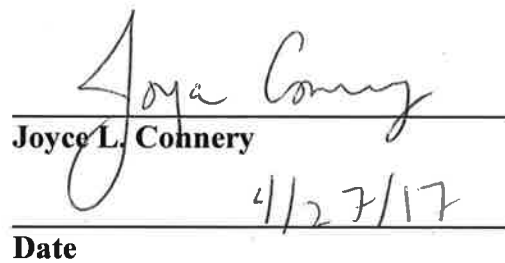 Joyce Connery
Joyce L. Connery
4/27/17
Date